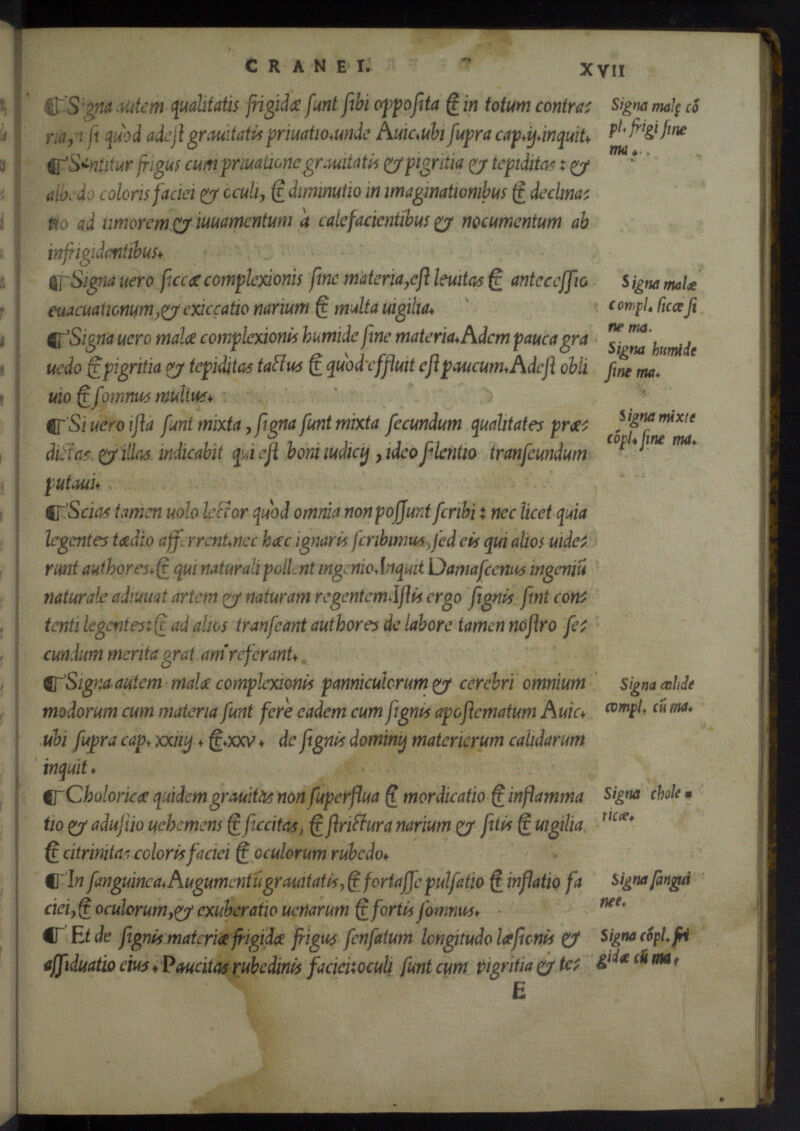 CRANEI. XVII
¶ Signa autem qualitatis frigidæ sunt sibi opposita & in totum contra=
ria, nisi quòd adest grauitatis priuatio. unde Auic. ubi supra cap. ij. inquit.
¶ Sentitur frigus cum priuatione grauitatis & pigritia & tepiditas: &
albedo coloris faciei & oculi, & diminutio in imaginationibus & declina=
tio ad timorem & iuuamentum à calefacientibus & nocumentum ab
infrigidantibus.
¶ Signa uero siccæ complexionis sine materia, est leuitas & antecessio
euacuationum, & exiccatio narium & multa uigilia.
¶ Signa uero malæ complexionis humide sine materia. Adem pauca gra
uedo & pigritia & tepiditas tactus & quod effluit est paucum. Adest obli
uio & somnus multus.
¶ Si uero ista sunt mixta, signa sunt mixta secundum qualitates præ=
dictas & illas indicabit qui est boni iudicij, ideo silentio transeundum
putaui.
¶ Scias tamen uolo lector quòd omnia non possunt scribi: nec licet quia
legentes tædio afferrent. nec hæc ignaris scribimus, sed eis qui alios uide=
runt authores. & qui naturali pollent ingenio. Inquit Damascenus ingeniū
naturale adiuuat artem & naturam regentem. Istis ergo signis sint con=
tenti legentes: & ad alios transeant authores de labore tamen nostro se=
cundum merita grat am referant.
¶ Signa autem malæ complexionis panniculorum & cerebri omnium
modorum cum materia sunt fere eadem cum signis apostematum Auic.
ubi supra cap. xxiiij. &. xxv. de signis dominij materierum calidarum
inquit.
¶ Choloricæ quidem grauitas non superflua & mordicatio & inflamma
tio & adustio uehemens & siccitas, & strictura narium & sitis & uigilia
& citrinitas coloris faciei & oculorum rubedo.
¶ In sanguinea. Augumentū grauitatis, & fortasse pulsatio & inflatio fa
ciei, & oculorum, & exuberatio uenarum & fortis somnus.
¶ Et de signis materiæ frigidæ frigus sensatum longitudo læsionis &
assiduatio eius. Paucitas rubedinis faciei: oculi sunt cum pigritia & te=
E
Signa malę cō
pl. frigi sine
ma.
Signa malæ
compl. siccæ si
ne ma.
Signa humide
sine ma.
Signa mixte
cōpl. sine ma.
Signa calide
compl. cū ma.
Signa chole=
ricæ.
Signa sangui
nee.
Signa cōpl. fri
gidæ cū ma.